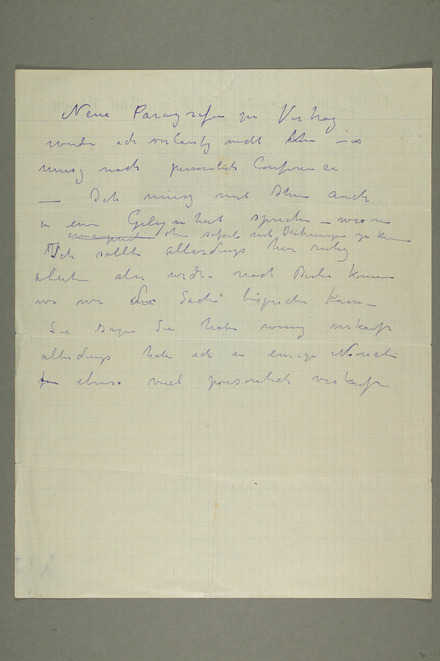 Neue Paragrafen zu Vertrag
werde ich vorläufig nicht
muss noch persönlich Conferieren
— Ich muss mit Ihnen auch
in einer Gelegenheit sprechen –
ohne sofort mit Drohungen zu kommen
Ich sollte allerdings hier ruhig
arbeiten aber werde nach Berlin kommen
wo wir die Sache besprechen kann
Sie sagen Sie haben wenig verkauft
allerdings habe ich in einige Monate
viel persönlich verkauft